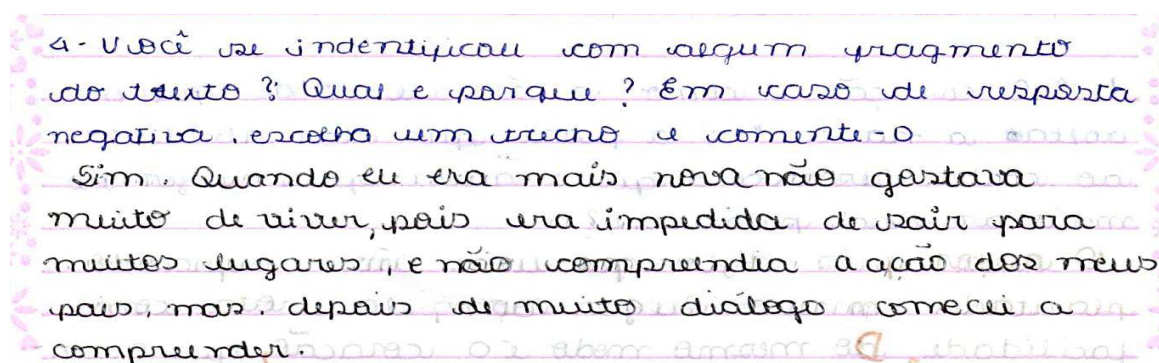 4- Você se indentificou com algum fragmento
do texto? Qual e porque? Em caso de resposta
negativa, escolha um trecho e comente-o
Sim. Quando eu era mais nova não gostava
muito de viver, pois era impedida de sair para
muitos lugares, e não compreendia a ação dos meus
pais, mas. depois de muito diálogo comecei a
compreender.